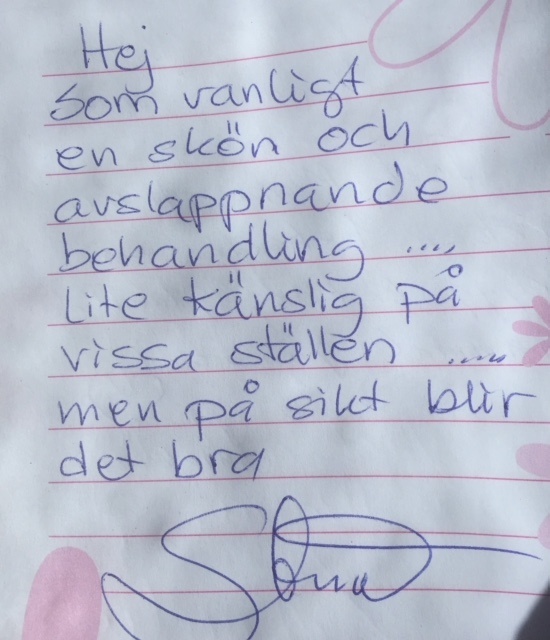 Hej
Som vanligt
en skön och
avslappnande
behandling ....
Lite känslig på
vissa ställen .....
men på sikt blir
det bra